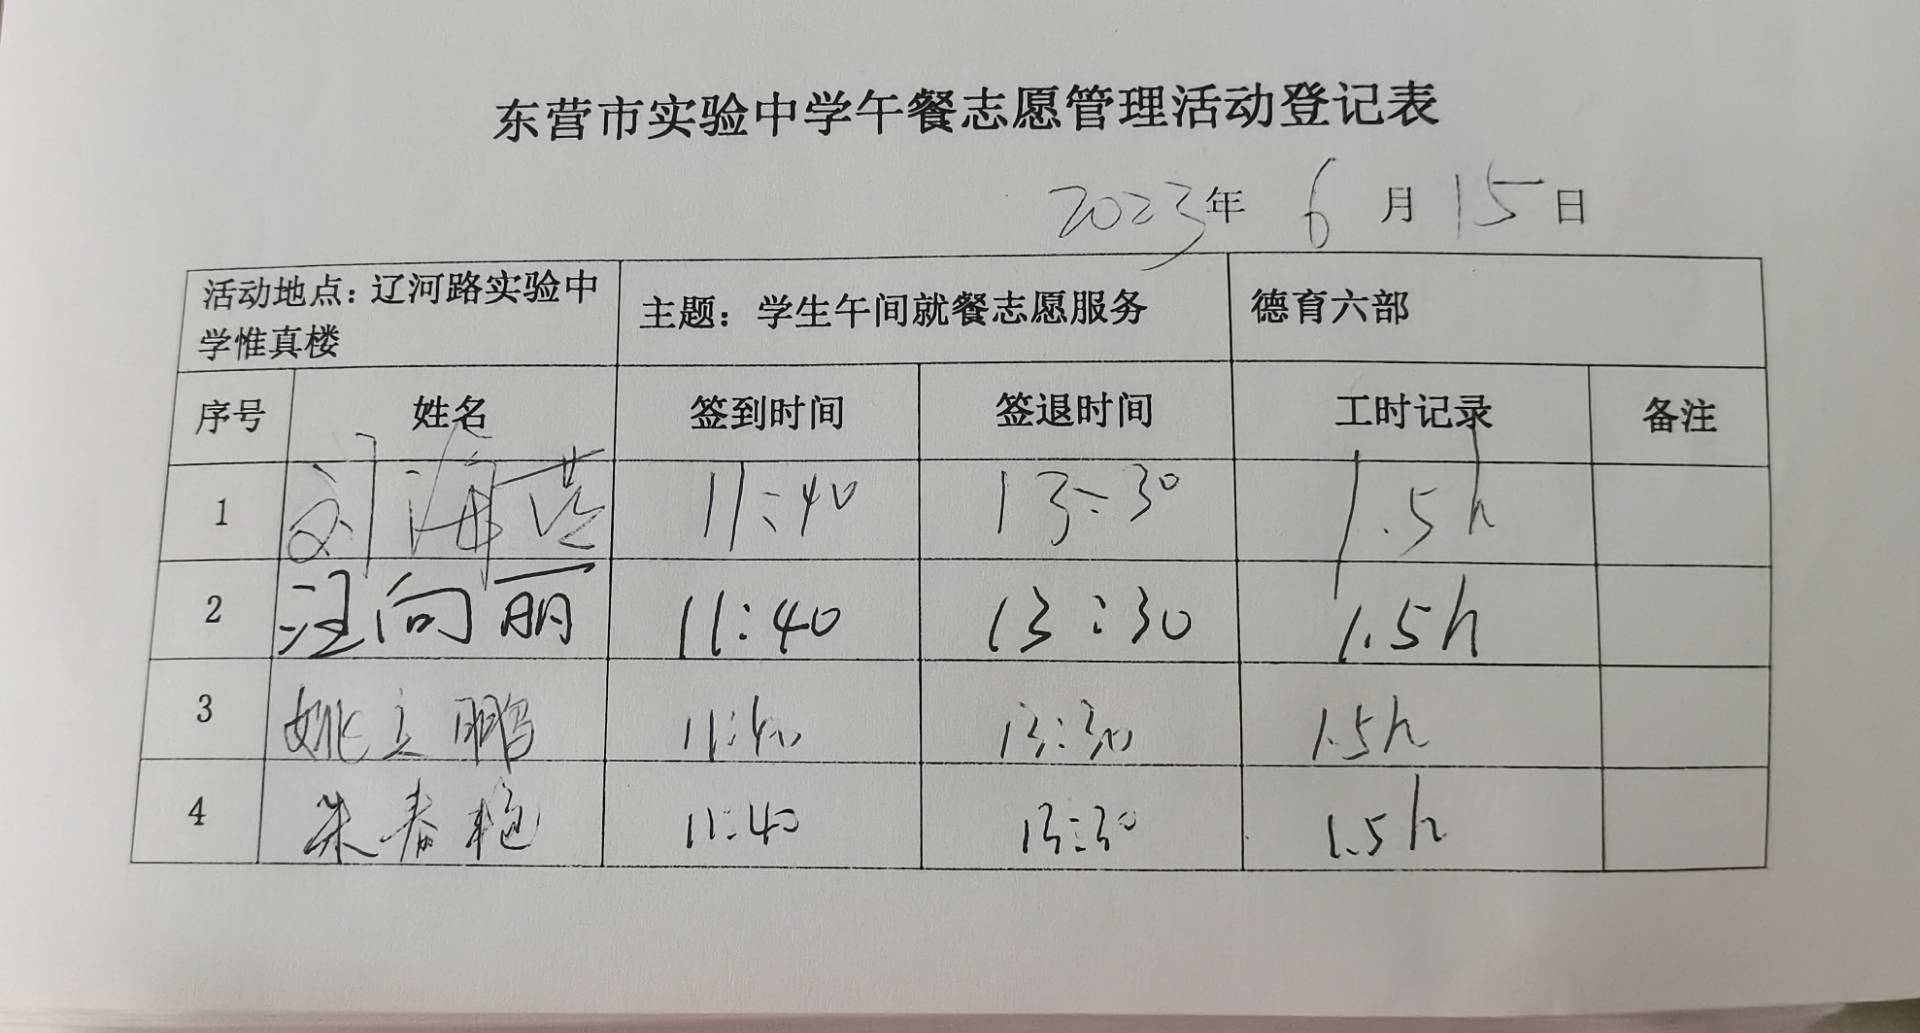 东营市实验中学午餐志愿管理活动登记表
2023年 6 月 15 日
活动地点：辽河路实验中
学惟真楼
主题：学生午间就餐志愿服务
德育六部
序号 姓名 签到时间 签退时间 工时记录 备注
1 刘海 11:40 13:30 1.5h
2 汪向丽 11:40 13:30 1.5h
3 姚立鹏 11:40 13:30 1.5h
4 朱春艳 11:40 13:30 1.5h